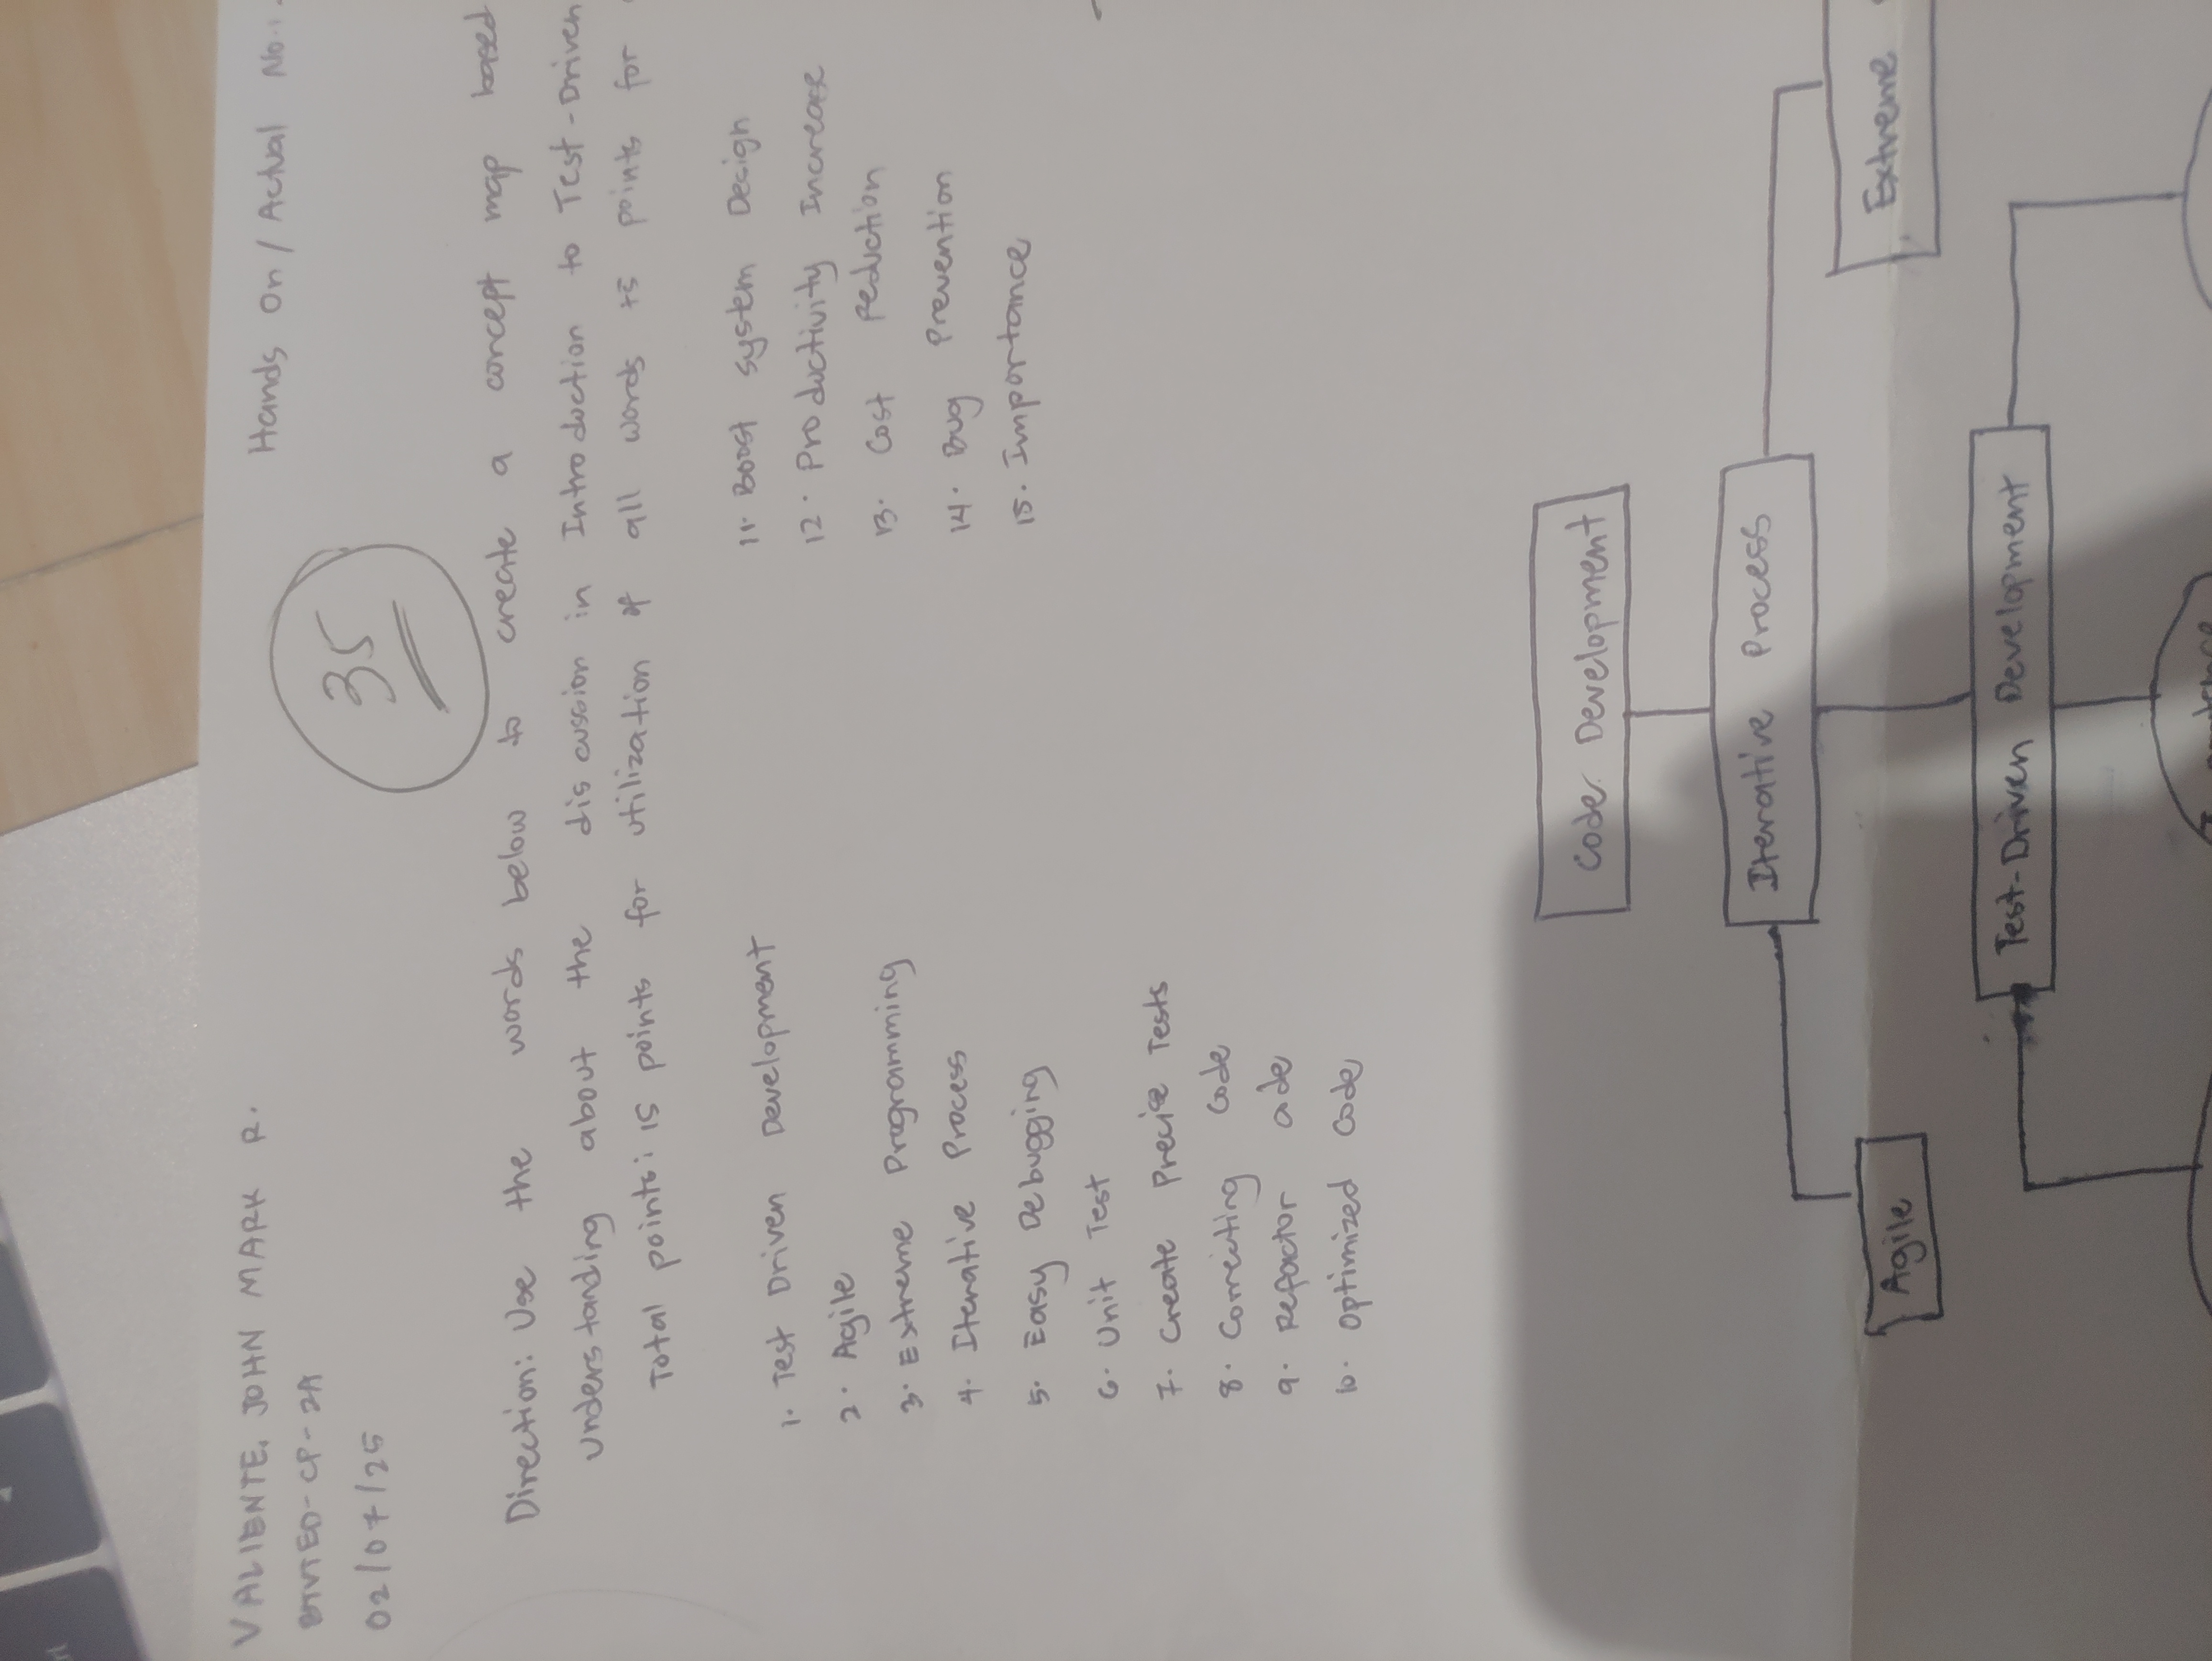 VALIENTE, JOHN MARK R.
Hands On / Actual No.
BTVTED-CP-2A
02/07/25
35
Direction: Use the words below to create a concept map based
understanding about the discussion in Introduction to Test-Driven
Total points: 15 points for utilization of all words +5 points for
1. Test Driven Development
2. Agile
3. Extreme Programming
4. Iterative Process
5. Easy Debugging
6. Unit Test
7. Create Precise Tests
8. Correcting Code
9. Refactor Code
10. Optimized Code
11. Boost System Design
12. Productivity Increase
13. Cost Reduction
14. Bug Prevention
15. Importance
Code Development
Iterative Process
Agile
Extreme
Test-Driven Development